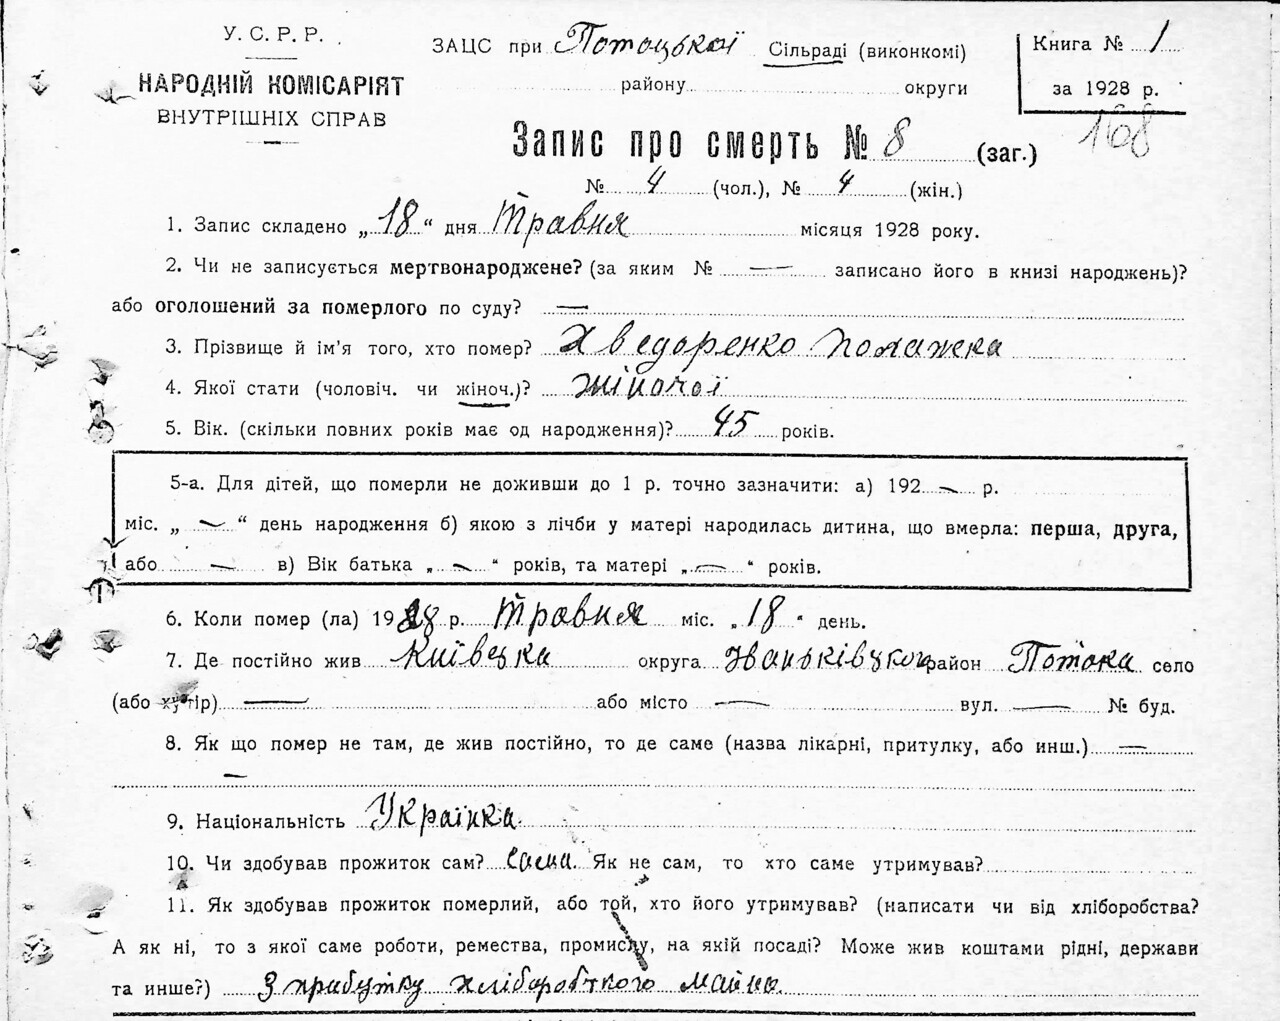 У. С. Р. Р.
НАРОДНІЙ КОМІСАРІЯТ
ВНУТРІШНІХ СПРАВ
ЗАЦС при Потоцької Сільраді (виконкомі)
району округи
Книга № 1
за 1928 р.
168
Запис про смерть № 8 (заг.)
№ 4 (чол.), № 4 (жін.)
1. Запис складено „18“ дня Травня місяця 1928 року.
2. Чи не записується мертвонароджене? (за яким № — записано його в книзі народжень)?
або оголошений за померлого по суду? —
3. Прізвище й ім'я того, хто помер? Хведоренко Полажка
4. Якої стати (чоловіч. чи жіноч.)? жіночої
5. Вік. (скільки повних років має од народження)? 45 років.
5-а. Для дітей, що померли не доживши до 1 р. точно зазначити: а) 192 — р.
міс. „ — “ день народження б) якою з лічби у матері народилась дитина, що вмерла: перша, друга,
або — в) Вік батька „ — “ років, та матері „ — “ років.
6. Коли помер (ла) 1928 р. Травня міс. „18“ день.
7. Де постійно жив Київська округа Іваньківского район Потока село
(або хутір) — або місто — вул. — № буд.
8. Як що помер не там, де жив постійно, то де саме (назва лікарні, притулку, або инш.) —
—
9. Національність Українка.
10. Чи здобував прожиток сам? сама. Як не сам, то хто саме утримував?
11. Як здобував прожиток померлий, або той, хто його утримував? (написати чи від хліборобства?
А як ні, то з якої саме роботи, ремества, промислу, на якій посаді? Може жив коштами рідні, держави
та инше?) З прибутку хліборобчкого майна.